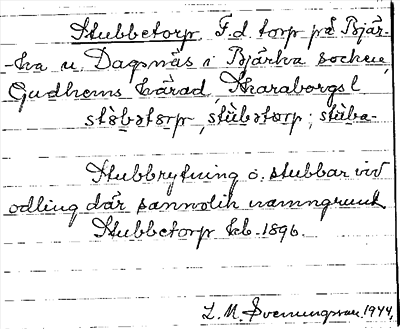 Stubbetorp. F.d. torp på Bjär-
-ka u. Dagsnäs i Bjärka socken,
Gudhems härad, Skaraborgs l.
stòb̲ətɔrp, stùb̲ətɔrp; stùb̲a-
Stubbrytning o. stubbar vid
odling där sannolik namngrund
Stubbetorp kb. 1896.
L. M. Svenungsson. 1944.